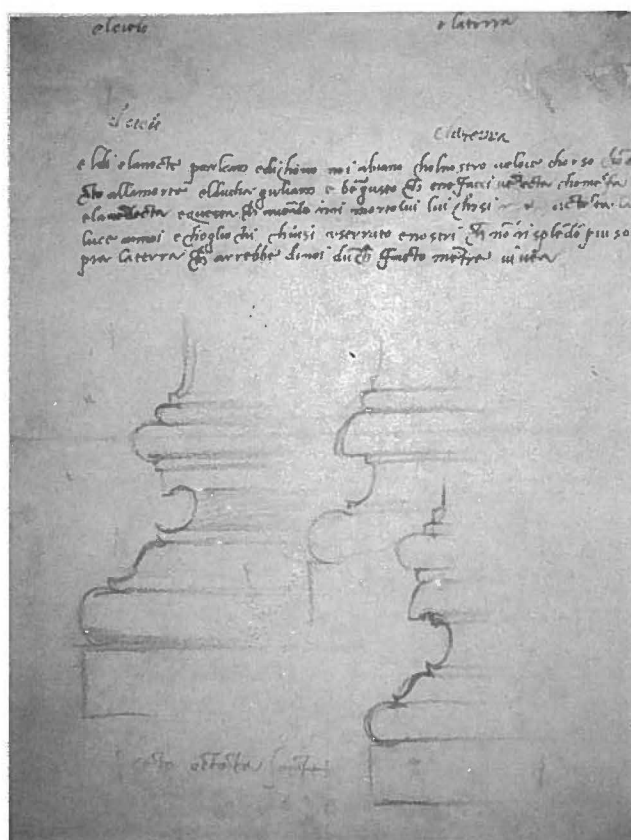 el cielo                    e la terra
el cielo                    e la terra
el dì e la nocte parlano e dichono noi abiano chol nostro veloce chorso chō
docto alla morte el ducha giuliano e bē giusto che e ne facci vēdecta chome fa
e la vēdecta e questa che avendo noi morto lui lui chosi morto a tolta la
luce a noi e chogli ochi chiusi a serrato e nostri che nō risplēdō piu so
pra la terra che arrebbe di noi dūche facto mētre vivea